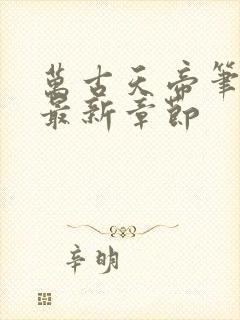 萬古天帝筆
最新章節
辛明